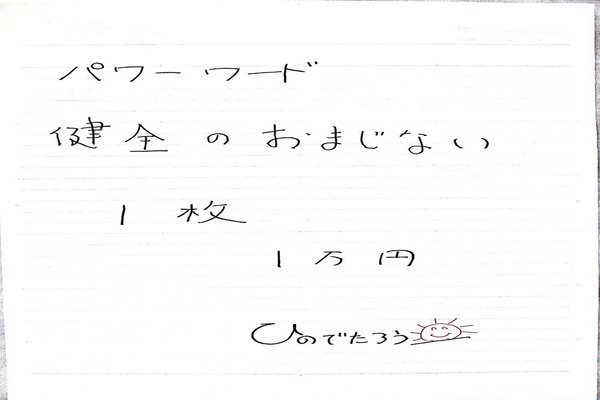 パワーワード
健全のおまじない
1枚
1万円
ひのでたろう